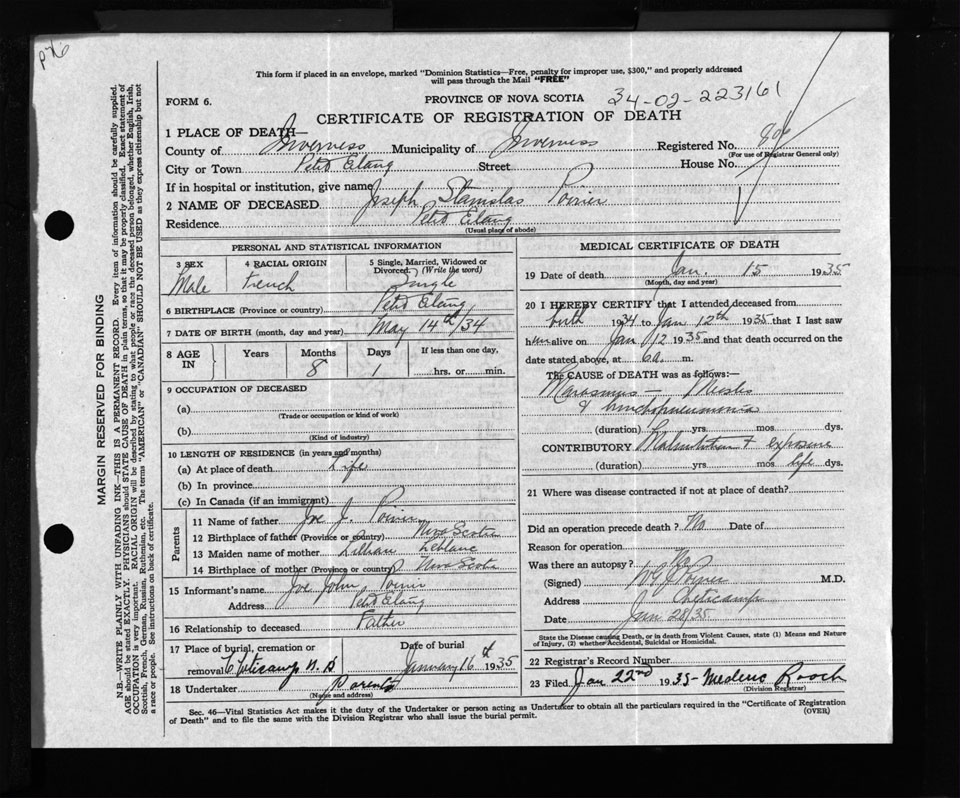 p76
This form if placed in an envelope, marked "Dominion Statistics—Free, penalty for improper use, $300," and properly addressed
will pass through the Mail "FREE"
FORM 6.
PROVINCE OF NOVA SCOTIA 34-02-223161
CERTIFICATE OF REGISTRATION OF DEATH
1 PLACE OF DEATH—
County of Inverness Municipality of Inverness Registered No.
(For use of Registrar General only)
City or Town Petit Etang Street House No.
If in hospital or institution, give name
2 NAME OF DECEASED Joseph Stanislas Poirier
Residence Petit Etang
(Usual place of abode)
PERSONAL AND STATISTICAL INFORMATION
3 SEX Male
4 RACIAL ORIGIN French
5 Single, Married, Widowed or
Divorced. (Write the word)
Single
6 BIRTHPLACE (Province or country) Petit Etang
7 DATE OF BIRTH (month, day and year) May 14th/34
8 AGE IN Years Months 8 Days 1 If less than one day,
hrs. or min.
9 OCCUPATION OF DECEASED
(a)
(Trade or occupation or kind of work)
(b)
(Kind of industry)
10 LENGTH OF RESIDENCE (in years and months)
(a) At place of death Life
(b) In province
(c) In Canada (if an immigrant)
Parents
11 Name of father Joe J. Poirier
12 Birthplace of father (Province or country) Nova Scotia
13 Maiden name of mother Lillian Leblanc
14 Birthplace of mother (Province or country) Nova Scotia
15 Informant's name Joe John Poirier
Address Petit Etang
16 Relationship to deceased Father
17 Place of burial, cremation or
removal Cheticamp N.S
Date of burial
January 16th 1935
18 Undertaker Parents
(Name and address)
MEDICAL CERTIFICATE OF DEATH
19 Date of death Jan. 15 1935
(Month, day and year)
20 I HEREBY CERTIFY that I attended deceased from
birth 1934 to Jan 12th 1935 that I last saw
him alive on Jan 12 1935 and that death occurred on the
date stated above, at 6 a. m.
The CAUSE of DEATH was as follows:—
Marasmus — Measles
& bronchopneumonia
(duration) yrs. mos. dys.
CONTRIBUTORY Malnutrition & exposure
(duration) yrs. mos. life dys.
21 Where was disease contracted if not at place of death?
Did an operation precede death? No Date of
Reason for operation
Was there an autopsy? No
(Signed) Poirier M.D.
Address Cheticamp
Date Jan 28/35
State the Disease causing Death, or in death from Violent Causes, state (1) Means and Nature
of Injury, (2) whether Accidental, Suicidal or Homicidal.
22 Registrar's Record Number
23 Filed Jan 22nd 1935 - Mederic Roach
(Division Registrar)
Sec. 46—Vital Statistics Act makes it the duty of the Undertaker or person acting as Undertaker to obtain all the particulars required in the "Certificate of Registration
of Death" and to file the same with the Division Registrar who shall issue the burial permit. (OVER)
MARGIN RESERVED FOR BINDING
N.B.—WRITE PLAINLY WITH UNFADING INK—THIS IS A PERMANENT RECORD. Every item of information should be carefully supplied.
AGE should be stated EXACTLY. PHYSICIANS should STATE CAUSE OF DEATH in plain terms, so that it may be properly classified. Exact statement of
OCCUPATION is very important. RACIAL ORIGIN will be described by stating to what people or race the deceased person belonged, whether English, Irish,
Scottish, French, German, Russian, Ruthenian, etc. The terms "AMERICAN" or "CANADIAN" SHOULD NOT BE USED as they express citizenship but not
a race or people. See instructions on back of certificate.